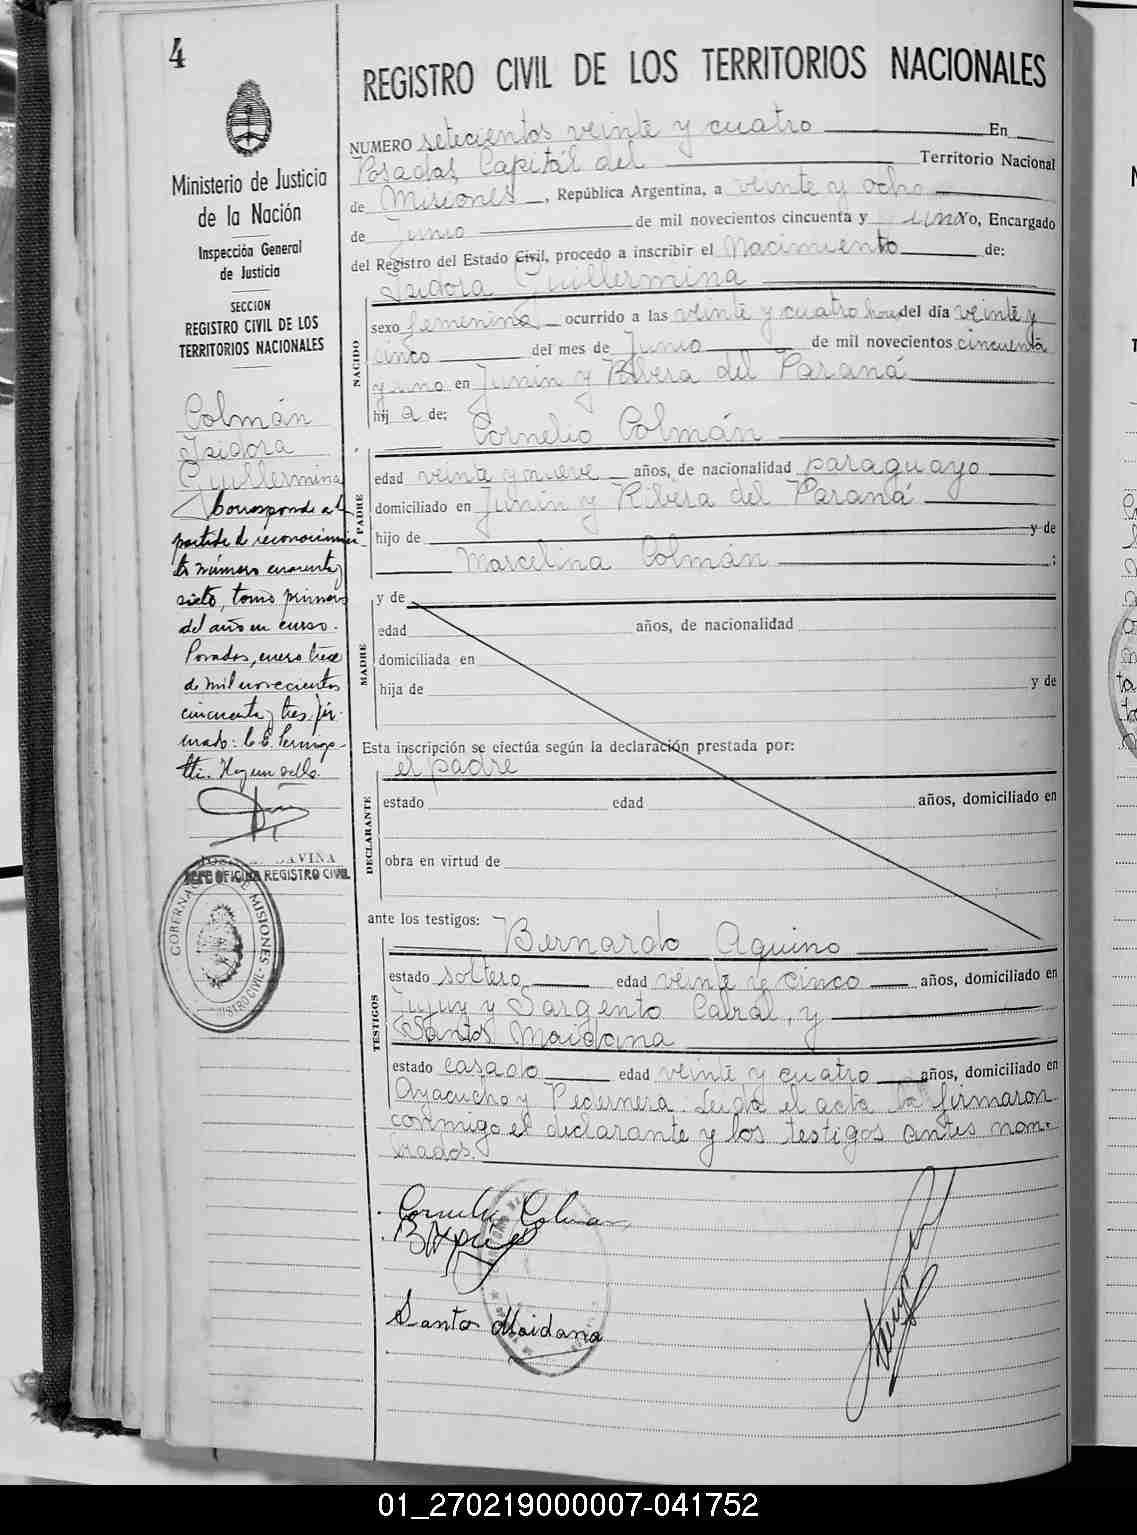 4
REGISTRO CIVIL DE LOS TERRITORIOS NACIONALES
Ministerio de Justicia
de la Nación
Inspección General
de Justicia
SECCION
REGISTRO CIVIL DE LOS
TERRITORIOS NACIONALES
Colmán
Isidora
Guillermina
Corresponde a la
partida de reconocimien
to número cuarenta y
siete, tomo primero
del año en curso.
Posadas, enero trece
de mil novecientos
cincuenta y tres. fir-
mado:
Hay un sello.
JEFE OFICINA REGISTRO CIVIL
GOBERNACION DE MISIONES
NUMERO setecientos veinte y cuatro En
Posadas, Capital del Territorio Nacional
de Misiones, República Argentina, a veinte y ocho
de Junio de mil novecientos cincuenta y uno Yo, Encargado
del Registro del Estado Civil, procedo a inscribir el Nacimiento de:
Isidora Guillermina
NACIDO
sexo femenino ocurrido a las veinte y cuatro horas del día veinte y
cinco del mes de Junio de mil novecientos cincuenta
y uno en Junín y Ribera del Paraná
hij a de:
Cornelio Colmán
PADRE
edad veinte y nueve años, de nacionalidad paraguayo
domiciliado en Junín y Ribera del Paraná
hijo de y de
Marcelina Colmán ;
MADRE
y de
edad años, de nacionalidad
domiciliada en
hija de y de
Esta inscripción se efectúa según la declaración prestada por:
el padre
DECLARANTE
estado edad años, domiciliado en
obra en virtud de
ante los testigos:
Bernardo Aquino
TESTIGOS
estado soltero edad veinte y cinco años, domiciliado en
Jujuy y Sargento Cabral, y
Santos Maidana
estado casado edad veinte y cuatro años, domiciliado en
Ayacucho y Pedernera. Leída el acta la firmaron
conmigo el declarante y los testigos antes nom-
brados.
Cornelio Colman
Santos Maidana
01_270219000007-041752